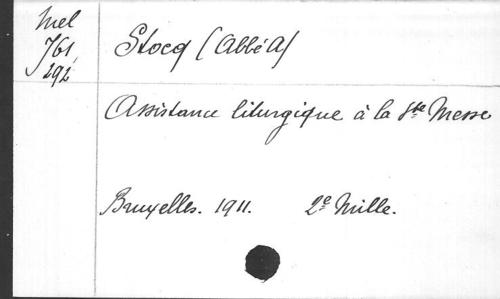 Mel
761,
292
Stocq (Abbé A)
Assistance liturgique à la Ste Messe
Bruxelles. 1911. 2e Mille.